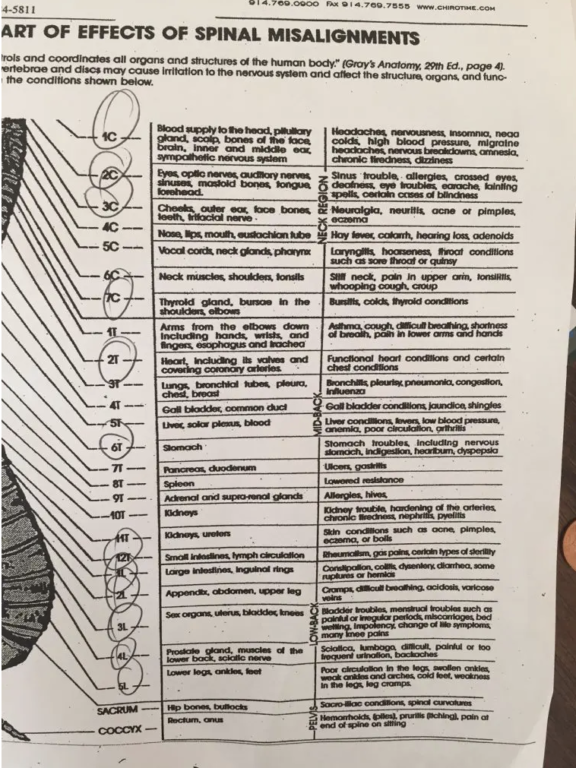 4-5811
914.769.0900 FAX 914.769.7555 WWW.CHIROTIME.COM
ART OF EFFECTS OF SPINAL MISALIGNMENTS
trols and coordinates all organs and structures of the human body." (Gray's Anatomy, 29th Ed., page 4).
vertebrae and discs may cause irritation to the nervous system and affect the structure, organs, and func-
the conditions shown below.
1C
Blood supply to the head, pituitary
gland, scalp, bones of the face,
brain, inner and middle ear,
sympathetic nervous system
Headaches, nervousness, insomnia, head
colds, high blood pressure, migraine
headaches, nervous breakdowns, amnesia,
chronic tiredness, dizziness
2C
Eyes, optic nerves, auditory nerves,
sinuses, mastoid bones, tongue,
forehead.
Sinus trouble, allergies, crossed eyes,
deafness, eye troubles, earache, fainting
spells, certain cases of blindness
3C
Cheeks, outer ear, face bones,
teeth, trifacial nerve
Neuralgia, neuritis, acne or pimples,
eczema
4C
Nose, lips, mouth, eustachian tube
Hay fever, catarrh, hearing loss, adenoids
5C
Vocal cords, neck glands, pharynx
Laryngitis, hoarseness, throat conditions
such as sore throat or quinsy
6C
Neck muscles, shoulders, tonsils
Stiff neck, pain in upper arm, tonsilitis,
whooping cough, croup
7C
Thyroid gland, bursae in the
shoulders, elbows
Bursitis, colds, thyroid conditions
NECK REGION
1T
Arms from the elbows down
including hands, wrists, and
fingers, esophagus and trachea
Asthma, cough, difficult breathing, shortness
of breath, pain in lower arms and hands
2T
Heart, including its valves and
covering coronary arteries.
Functional heart conditions and certain
chest conditions
3T
Lungs, bronchial tubes, pleura,
chest, breast
Bronchitis, pleurisy, pneumonia, congestion,
influenza
4T
Gall bladder, common duct
Gall bladder conditions, jaundice, shingles
5T
Liver, solar plexus, blood
Liver conditions, fevers, low blood pressure,
anemia, poor circulation, arthritis
6T
Stomach
Stomach troubles, including nervous
stomach, indigestion, heartburn, dyspepsia
7T
Pancreas, duodenum
Ulcers, gastritis
8T
Spleen
Lowered resistance
9T
Adrenal and supra-renal glands
Allergies, hives,
10T
Kidneys
Kidney trouble, hardening of the arteries,
chronic tiredness, nephritis, pyelitis
11T
Kidneys, ureters
Skin conditions such as acne, pimples,
eczema, or boils
12T
Small intestines, lymph circulation
Rheumatism, gas pains, certain types of sterility
MID-BACK
1L
Large intestines, inguinal rings
Constipation, colitis, dysentery, diarrhea, some
ruptures or hernias
2L
Appendix, abdomen, upper leg
Cramps, difficult breathing, acidosis, varicose
veins
3L
Sex organs, uterus, bladder, knees
Bladder troubles, menstrual troubles such as
painful or irregular periods, miscarriages, bed
wetting, impotency, change of life symptoms,
many knee pains
4L
Prostate gland, muscles of the
lower back, sciatic nerve
Sciatica, lumbago, difficult, painful or too
frequent urination, backaches
5L
Lower legs, ankles, feet
Poor circulation in the legs, swollen ankles,
weak ankles and arches, cold feet, weakness
in the legs, leg cramps.
LOW-BACK
SACRUM
Hip bones, buttocks
Sacro-iliac conditions, spinal curvatures
COCCYX
Rectum, anus
Hemorrhoids, (piles), pruritis (itching), pain at
end of spine on sitting
PELVIS